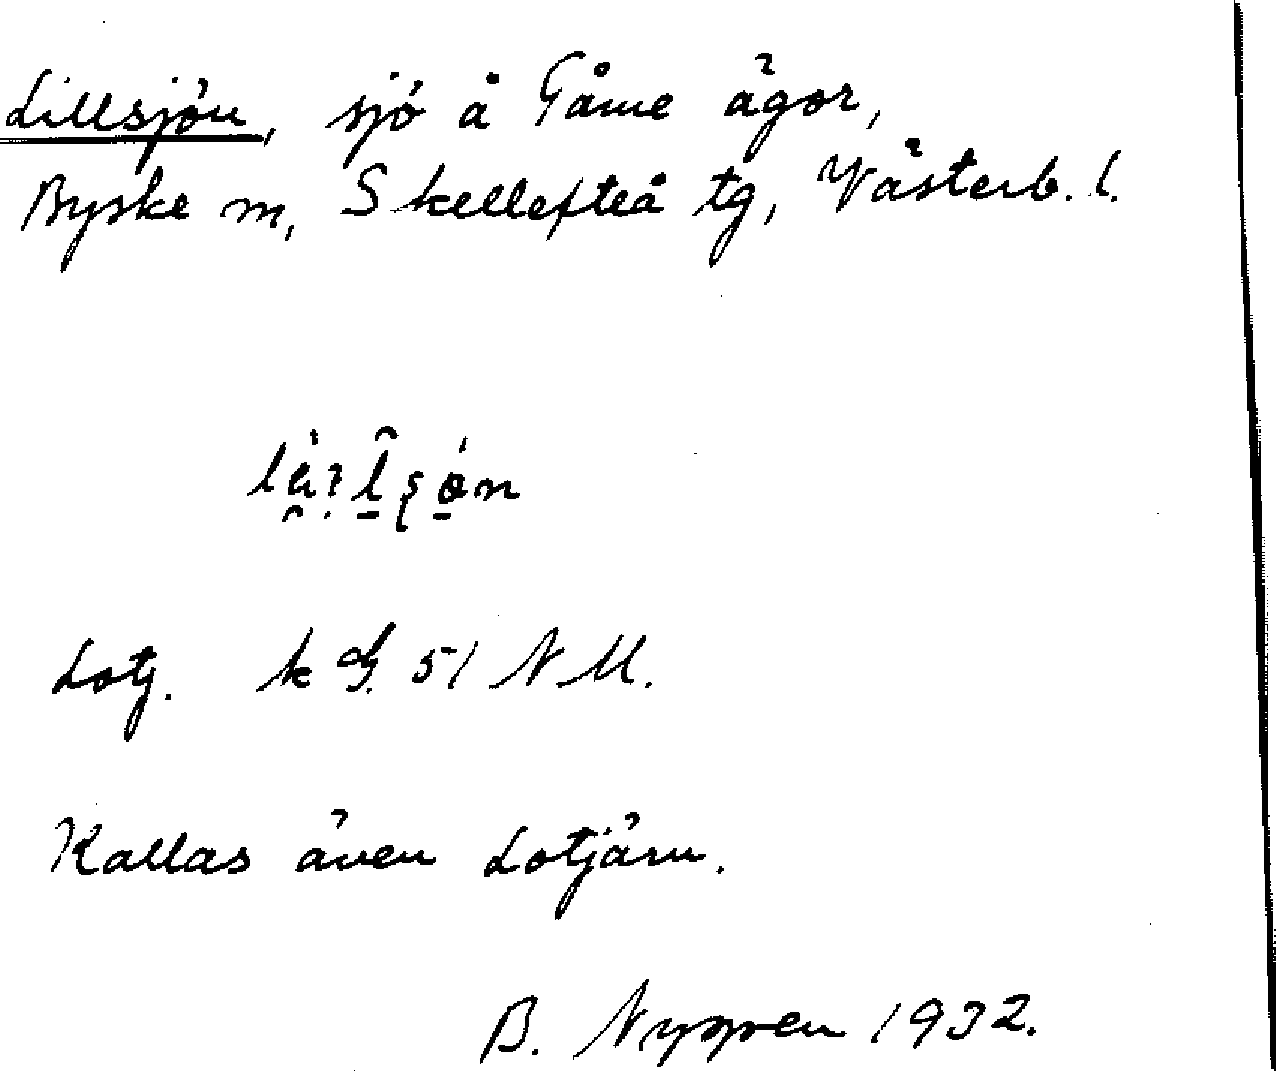 Lillsjön, sjö å Tåme ägor,
Byske sn, Skellefteå tg, Västerb. l.
Lotj. k 51 NM.
Kallas även Lotjärn.
B. Nygren 1932.